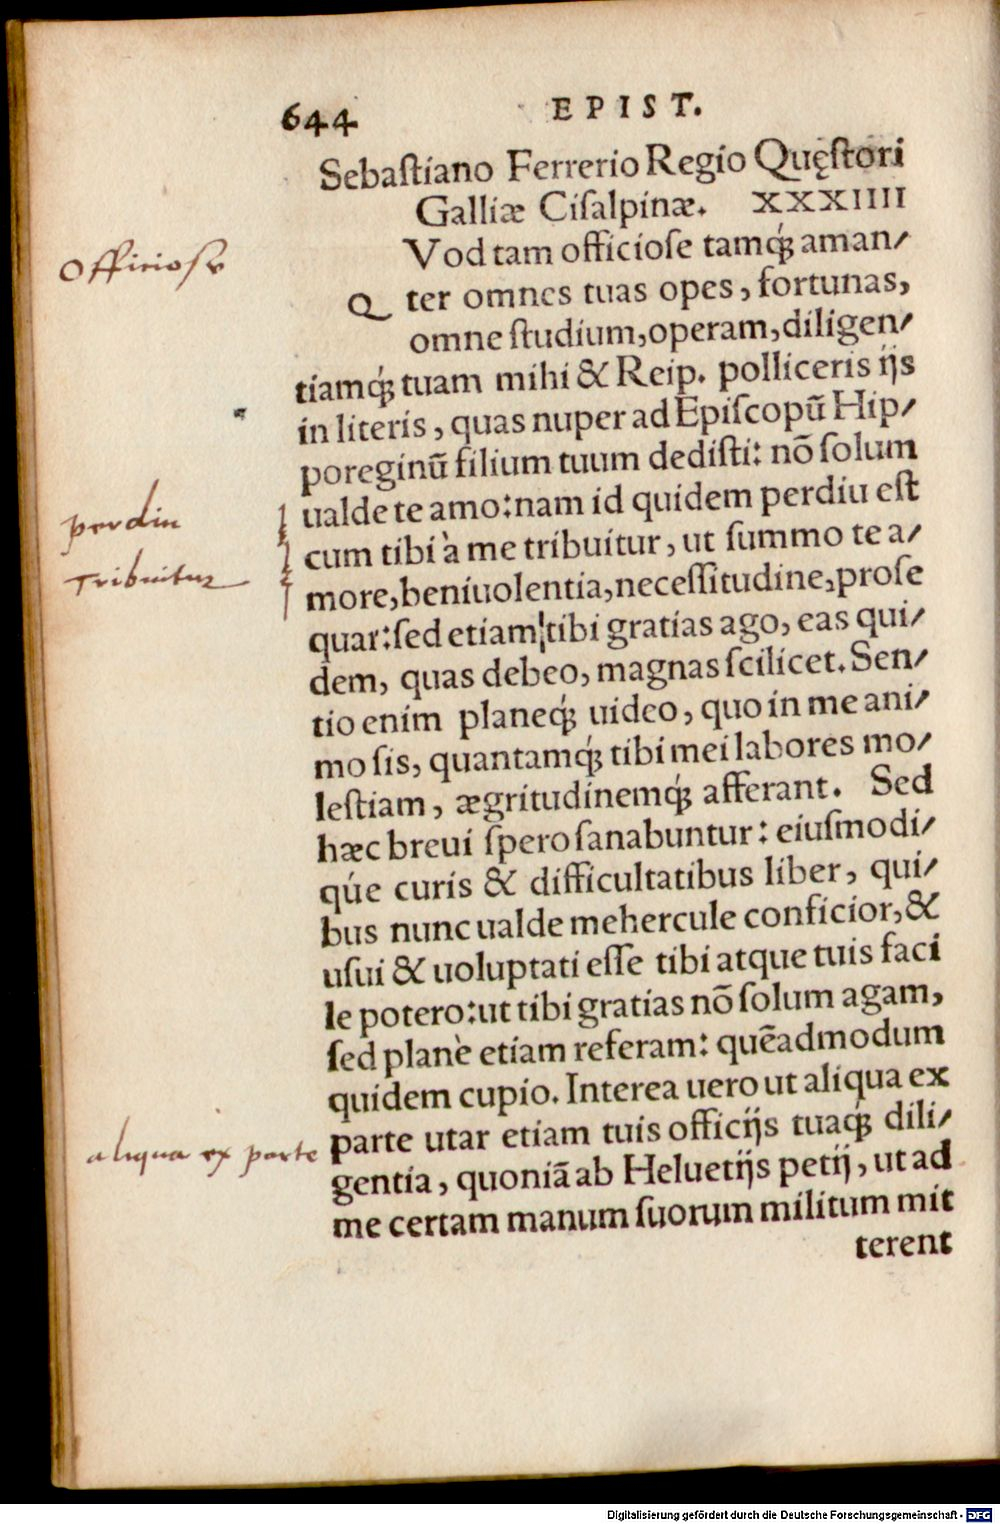 644 EPIST.
Sebaſtiano Ferrerio Regio Quęſtori
Galliæ Ciſalpinæ. XXXIIII
Vod tam officioſe tamq́; aman⸗
Q ter omnes tuas opes, fortunas,
omne ſtudium, operam, diligen⸗
tiamq́; tuam mihi & Reip. polliceris ijs
in literis, quas nuper ad Epiſcopū Hip⸗
poreginū filium tuum dediſti: nō ſolum
ualde te amo: nam id quidem perdiu eſt
cum tibi à me tribuitur, ut ſummo te a⸗
more, beniuolentia, neceſſitudine, proſe
quar: ſed etiam tibi gratias ago, eas qui⸗
dem, quas debeo, magnas ſcilicet. Sen⸗
tio enim planeq́; uideo, quo in me ani⸗
mo ſis, quantamq́; tibi mei labores mo⸗
leſtiam, ægritudinemq́; afferant. Sed
hæc breui ſpero ſanabuntur: eiuſmodi⸗
qúe curis & difficultatibus liber, qui⸗
bus nunc ualde mehercule conficior, &
uſui & uoluptati eſſe tibi atque tuis faci
le potero: ut tibi gratias nō ſolum agam,
ſed planè etiam referam: quēadmodum
quidem cupio. Interea uero ut aliqua ex
parte utar etiam tuis officijs tuaq́; dili⸗
gentia, quoniā ab Heluetijs petij, ut ad
me certam manum ſuorum militum mit
terent
Officiose
perdiu
Tribuitur
aliqua ex parte
Digitalisierung gefördert durch die Deutsche Forschungsgemeinschaft - DFG